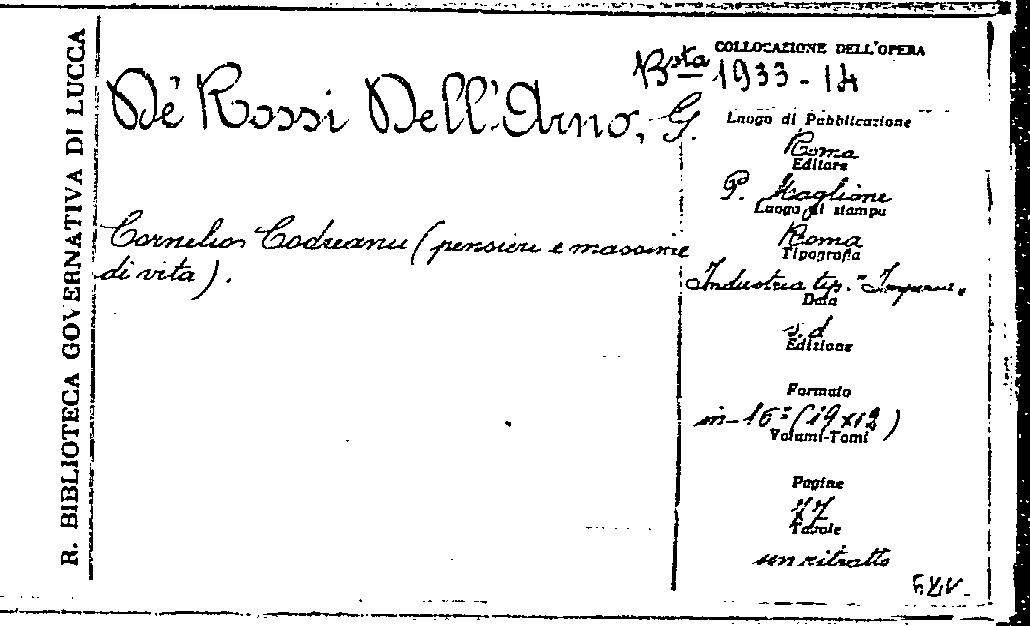 R. BIBLIOTECA GOVERNATIVA DI LUCCA
COLLOCAZIONE DELL'OPERA
Bsta 1933-14
Dè Rossi Dell'Arno, G.
Cornelios Codreanu (pensieri e massime
di vita).
Luogo di Pubblicazione
Roma
Editore
P. Maglione
Luogo di stampa
Roma
Tipografia
Industria tip. "Imperia"
Data
s.d
Edizione
Formato
in-16º (19x12)
Volumi-Tomi
Pagine
Tavole
un ritratto